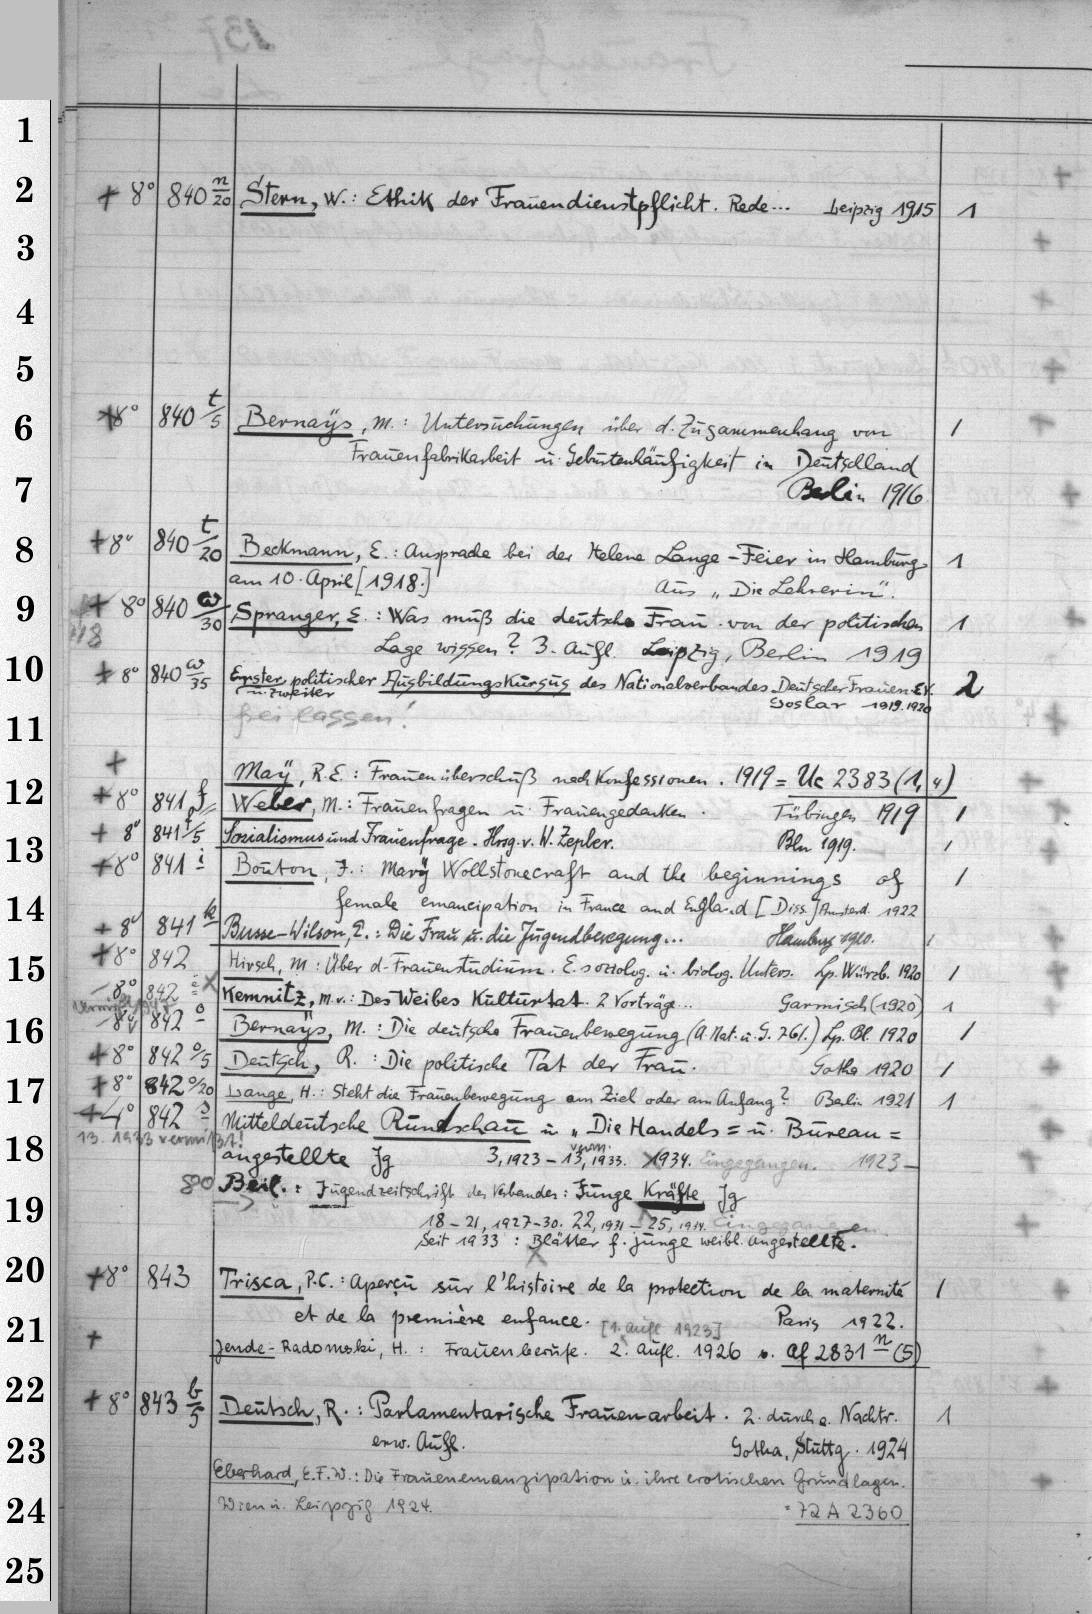 1
2 + 8° 840 n/20 Stern, W.: Ethik der Frauendienstpflicht. Rede... Leipzig 1915 1
3
4
5
6 + 8° 840 t/5 Bernaÿs, M.: Untersuchungen über d. Zusammenhang von 1
Frauenfabrikarbeit u. Geburtenhäufigkeit in Deutschland
7 Berlin 1916
8 + 8° 840 t/20 Beckmann, E.: Ansprache bei der Helene Lange-Feier in Hamburg 1
am 10. April [1918.] Aus „Die Lehrerin".
9 + 8° 840 w/30 Spranger, E.: Was muß die deutsche Frau von der politischen 1
Lage wissen? 3. Aufl. Leipzig, Berlin 1919
10 + 8° 840 w/35 Erster politischer Ausbildungskursus des Nationalverbandes Deutscher Frauen Ev. 2
u. zweiter Goslar 1919.1920
11 frei lassen!
+ Maÿ, R.E.: Frauenüberschuß nach Konfessionen. 1919 = Uc 2383 (1,4)
12 + 8° 841 f Weber, M.: Frauenfragen u. Frauengedanken. Tübingen 1919 1
+ 8° 841 f/5 Sozialismus und Frauenfrage. Hrsg. v. W. Zepler. Bln 1919. 1
13 + 8° 841 i Bouton, J.: Marÿ Wollstonecraft and the beginnings of 1
14 female emancipation in France and England [Diss.] Amsterd. 1922
+ 8° 841 k Busse-Wilson, E.: Die Frau u. die Jugendbewegung... Hamburg 1920. 1
15 + 8° 842 Hirsch, M: Über d. Frauenstudium. E. soziolog. u. biolog. Unters. Lp. Würzb. 1920 1
8° 842 Kemnitz, M. v.: Des Weibes Kulturtat. 2 Vorträge... Garmisch (1920) 1
16 8° 842 o Bernaÿs, M.: Die deutsche Frauenbewegung (A. Nat. u. G. 761.) Lp. Bl. 1920 1
+ 8° 842 o/5 Deutsch, R.: Die politische Tat der Frau. Gotha 1920 1
17 + 8° 842 o/20 Lange, H.: Steht die Frauenbewegung am Ziel oder am Anfang? Berlin 1921 1
+ 4° 842 Mitteldeutsche Rundschau u. „Die Handels= u. Bureau=
13. 1933 vermißt!
18 angestellte Jg 3,1923 – 13,1933. 1934. Eingegangen. 1923–
verm.
80 Beil.: Jugendzeitschrift des Verbandes: Junge Kräfte Jg
19 18–21, 1927–30. 22, 1931 – 25, 1934. Eingegangen
Seit 1933: Blätter f. junge weibl. Angestellte.
20 + 8° 843 Trisca, P.C.: Aperçu sur l'histoire de la protection de la maternité 1
et de la première enfance. Paris 1922.
21 [1. Aufl. 1923]
+ Jende-Radomski, H.: Frauenberufe. 2. Aufl. 1926 s. Af 2831 n (5)
22 + 8° 843 b/5 Deutsch, R.: Parlamentarische Frauenarbeit. 2. durch e. Nachtr. 1
23 erw. Aufl. Gotha, Stuttg. 1924
Eberhard, E.F.W.: Die Frauenemanzipation u. ihre erotischen Grundlagen.
24 Wien u. Leipzig 1924. = 72 A 2360
25